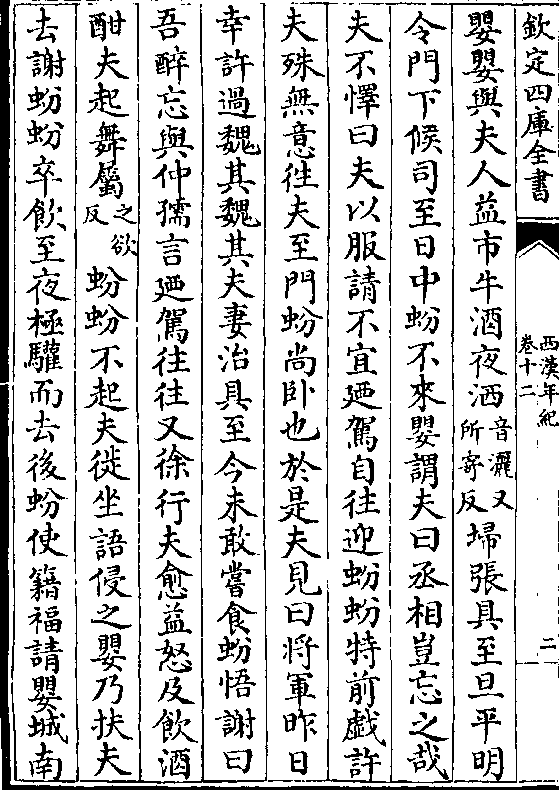 欽定四庫全書
西漢年紀
卷十二
二
嬰嬰與夫人益市牛酒夜洒音灑又所寄反埽張具至旦平明
令門下候司至日中蚡不來嬰謂夫曰丞相豈忘之哉
夫不懌曰夫以服請不宜廼駕自往迎蚡蚡特前戯許
夫殊無意往夫至門蚡尚卧也於是夫見曰将軍昨日
幸許過魏其魏其夫妻治具至今未敢嘗食蚡悟謝曰
吾醉忘與仲孺言廼駕往往又徐行夫愈益怒及飲酒
酣夫起舞屬之欲反蚡蚡不起夫徙坐語侵之嬰乃扶夫
去謝蚡蚡卒飲至夜極驩而去後蚡使籍福請嬰城南